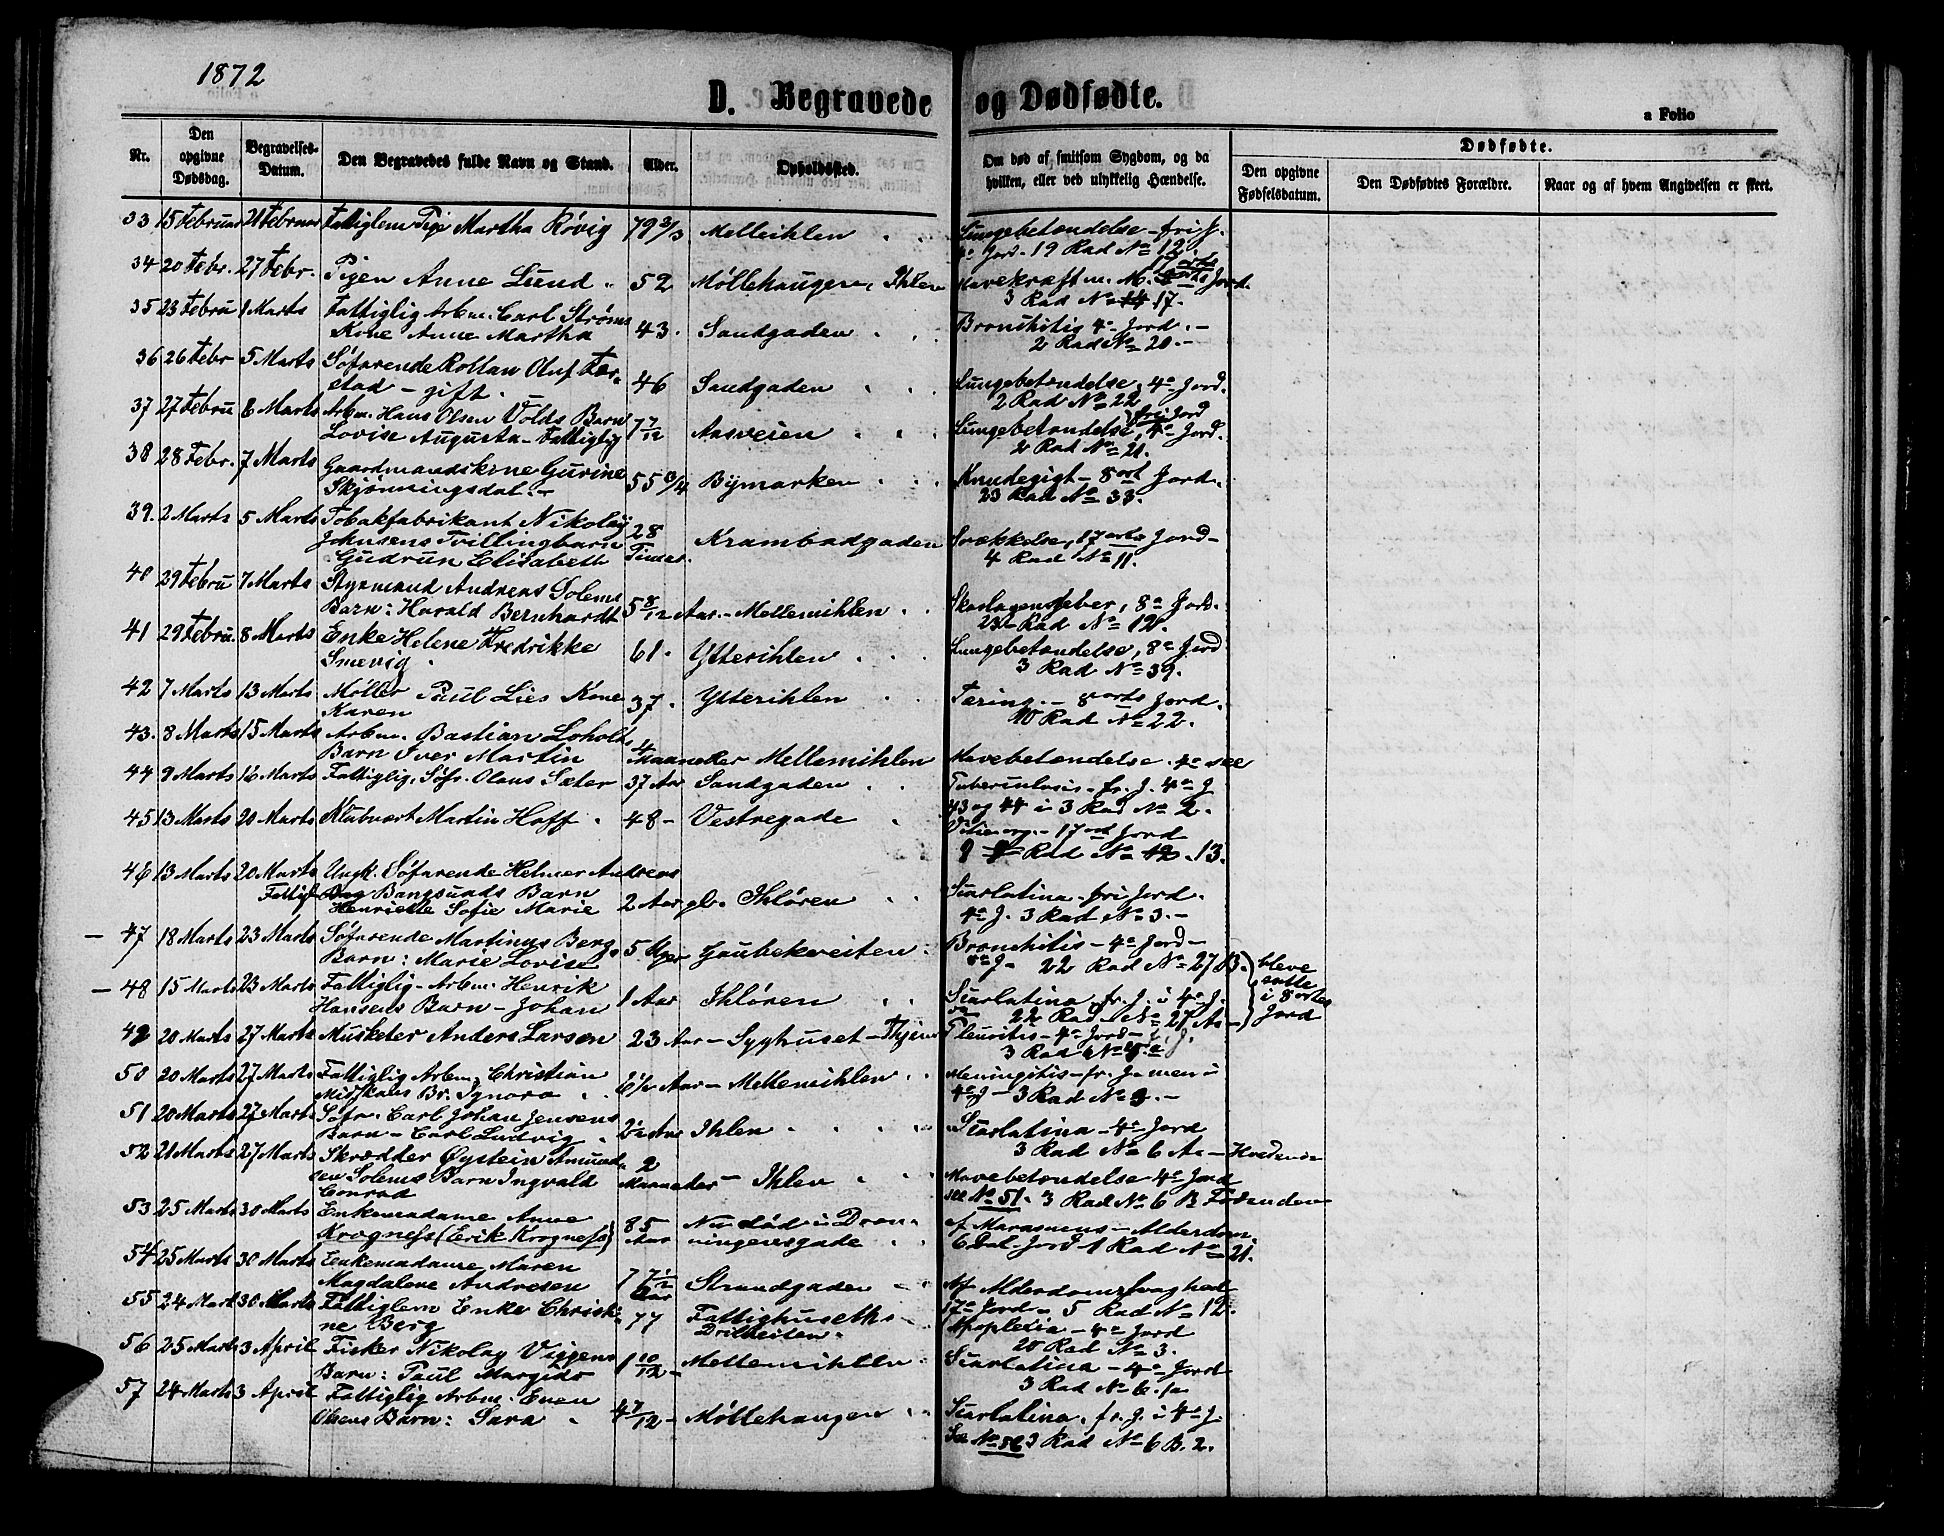 1872
D. Begravede og Dødfødte.
a Folio
Nr.
Den opgivne Dødsdag.
Begravelses-Datum.
Den Begravedes fulde Navn og Stand.
Alder.
Opholdssted.
Om død af smitsom Sygdom, og da hvilken, eller ved ulykkelig Hændelse.
Dødfødte.
Den opgivne Fødselsdatum.
Den Dødfødtes Forældre.
Naar og af hvem Angivelsen er skeet.
33 15 Februar 21 Februar Fattiglem Pige Martha Røvig 79 2/3 Melleihlen Lungebetændelse - fri J.
Jord. 19 Rad No 12.
34 20 Febr. 27 Febr. Pigen Anne Lund 52 Møllehaugen, Ihlen Mavekræft 17 orts Jord.
3 Rad No 17.
35 23 Febru 1 Marts Fattiglig Arbm. Carl Strøms Kone Anne Martha 43. Sandgaden Bronchitis 4a Jord. -
2 Rad No 20. -
36 26 Febr 5 Marts Søfarende Rollan Oluf Færstad - gift. 46 Sandgaden Lungebetændelse, 4a Jord.
2 Rad No 22
37 27 Febru 8 Marts Arbm. Hans Olsen Volds Barn Lovise Augusta - Fattiglig 1 7/12 Aasveien Lungebetændelse, fri Jord 4a Jord.
2 Rad No 21.
38 28 Febr. 7 Marts Gaardmandskone Gurine Skjønningsdal. - 55 Bymarken Knudegigt - 8 ort Jord.
23 Rad No 33.
39. 2 Marts 5 Marts Tobakfabrikant Nikolay Johnsens Tvillingbarn Gudrun Elisabeth 28 Timer. Krambodgaden Svækkelse, 17 orts Jord -
4 Rad No 11.
40 29 Febru 7 Marts Styrmand Andreas Solems Barn: Harald Bernhardt 5 8/12 Aar. - Mellemihlen Skarlagensfeber, 8a Jord.
23 - Rad No 12.
41 29 Febru. 8 Marts Enke Helene Fredrikke Smevig 61. Ytterihlen Lungebetændelse, 8a Jord
3 Rad No 39.
42 7 Marts 13 Marts Møller Paul Lies Kone Karen 37. Ytterihlen Tæring. - 8 orts Jord.
10 Rad No 22.
43. 8 Marts 15 Marts Arbm. Bastian Loholts Barn Iver Martin 4 Maaneder Mellemihlen Mavebetændelse. 4a see
44 9 Marts 16 Marts Fattiglig. Søfr. Olaus Sæter 37 Aar Sandgaden Tuberculosis - fr. J. 4a J
43 og 44 i 3 Rad No 2.
45 13 Marts 20 Marts Klubvært Martin Hoff 48 - Vestregade Vitie org. - 17 ort Jord
9 Rad No 13.
46 13 Marts 20 Marts Ungk. Søfarende Helmer Andreas
Fattigl. Bangsunds Barn Henriette Sofie Marie 2 Aar gl. Ihlören Scarlatina - fri Jord.
4a J. 3 Rad No 3. -
- 47 18 Marts 23 Marts Søfarende Martinus Bergs Barn: Marie Lovise 5 Uger Gaubekveiten Bronchitis - 4a Jord -
22 Rad No 27 B. bleve satte i 8 ortes Jord
- 48 15 Marts 23 Marts Fattiglig - Arbm. Henrik Hansens Barn - Johan 1 Aar Ihlören Scarlatina, fr. J. i 4a J.
22 Rad - No 27 A. -
49 20 Marts 27 Marts Musketer Anders Larsen 23 Aar - Syghuset - Pleuritis - 4a Jord -
3 Rad
50 20 Marts 27 Marts Fattiglig Arbm. Christian Br. Ignora 6 1/2 Aar - Mellemihlen Meningitis - fr. J. men i
4a J - 3 Rad No 9. -
51 20 Marts 27 Marts Søfr. Carl Johan Jensens Barn - Carl Ludvig 2 1/2 Aar Ihlen Scarlatina - 4a Jord
3 Rad No 6 A. - Hovedende
52 21 Marts 27 Marts Skrædder Øystein Amundsen Solems Barn Ingvald Conrad 2 Maaneder - Ihlen Mavebetændelse 4a Jord
see No 51. 3 Rad No 6 B. Fodenden
53 25 Marts 30 Marts Enkemadame Anne Krogness (Erik Krogness) 85 Aar Nu død i Dronningensgade af Marasmus - Alderdom.
6 Dal. Jord 1 Rad No 21.
54 25 Marts 30 Marts Enkemadame Maren Magdalene Andresen 7 1/2 Aar Strandgaden Af Alderdomssvaghed
17a Jord - 5 Rad No 12.
55 24 Mart 30 Marts Fattiglem Enke Christine Berg 77 Fattighuseths - Apoplexia - 4a Jord
20 Rad No 3.
56 25 Marts 3 April Fisker Nikolay Viggens Barn: Paul Margido 1 10/12 - Mellemihlen Scarlatina - 4a Jord
3 Rad No 6.
57 24 Marts 3 April Fattiglig Arbm. Even Olsens Barn: Sara 4 7/12 - Møllehaugen Scarlatina, fr. J. i 4a J.
See No 56 3 Rad No 6 B. 2.